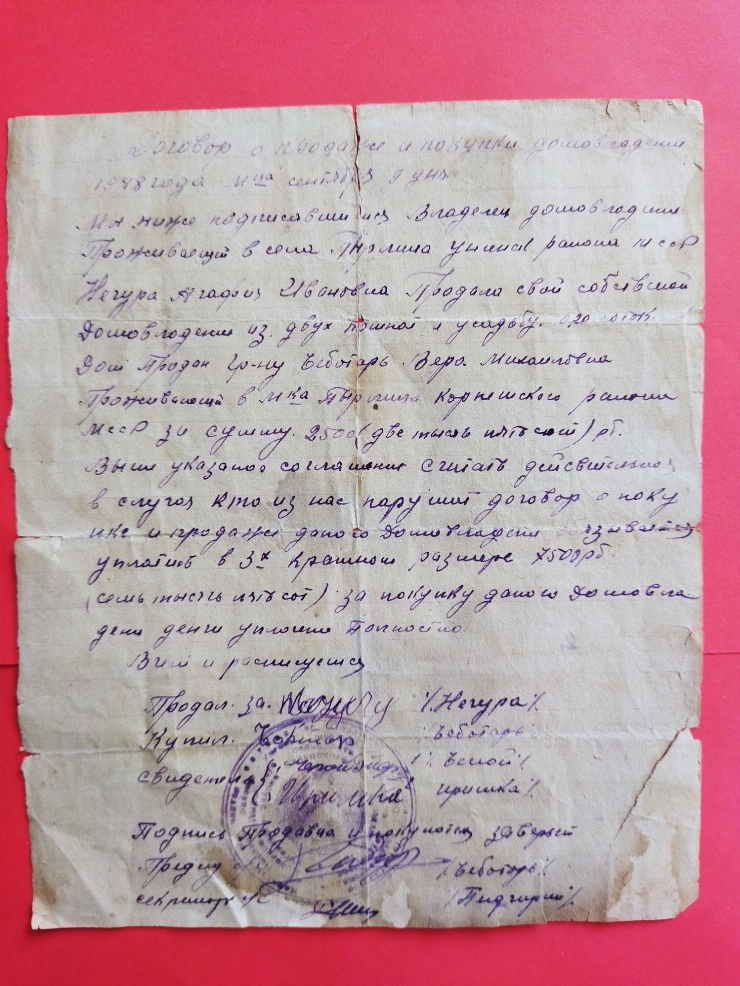 Договор о продаже и покупки домовладении
1948 года м-ца сентября 9 дня
Мы ниже подписавшиися Владелец домовладении
Проживающей в села Пырлица района МССР
Негура Агафия Ивановна Продала свой собствной
Домовладении из двух комнот и усадьбу 0,20 соток.
Дом Продан Гр-ну Чеботарь Вера Михаиловна
Проживающей в м-ка Пырлица Корнешского района
МССР за сумму 2500 (две тысяч пятьсот) рб.
Выше указаное соглашение считать действительной
в случая кто из нас нарушит договор о поку
пке и продаже даного Домовладения
уплатить в 3х кратном размере 7500 рб.
(семь тысяч пятьсот) за покупку даного Домовла
дени денги уплочено Полностю
В чем и расписуемся
Продал. за. /Негура/.
Купил. Чеботар /Чеботарь/
свидетели
Иримка /иримка/.
Подпись Продавца и покупателя заверяем
Председ /Чеботарь/
секретарь /с /Пидгирный/.